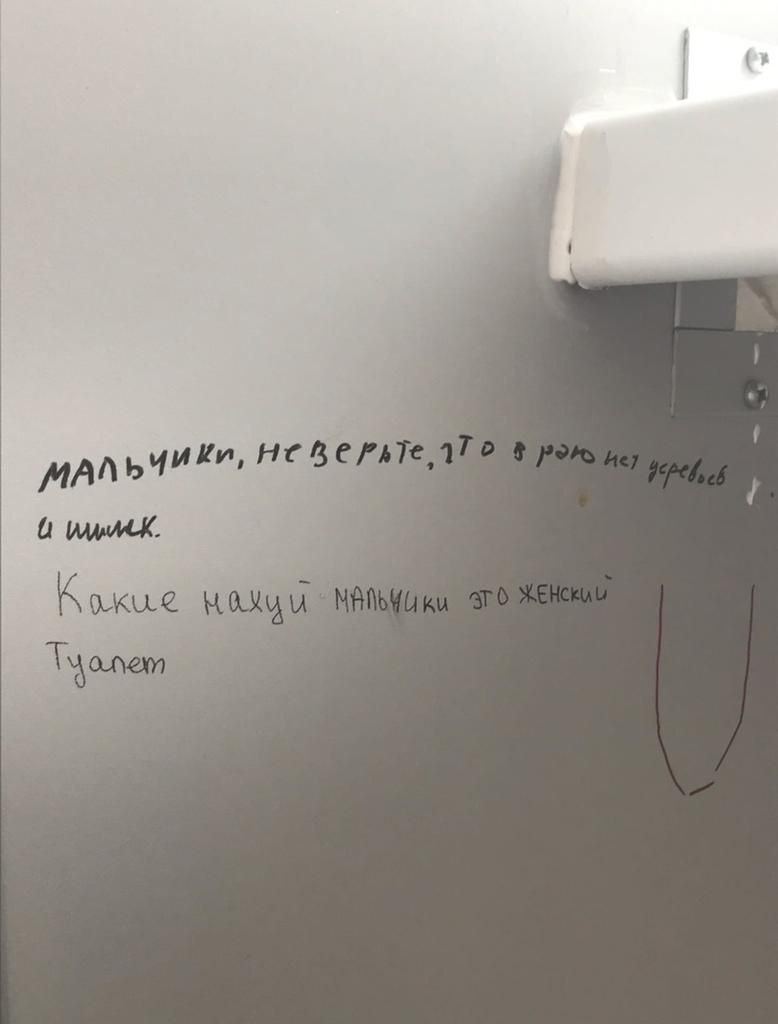 МАЛЬЧИКИ, НЕ ВЕРЬТЕ, ЧТО В раю нет деревьев
и шишек.
Какие нахуй МАЛЬЧИКИ ЭТО ЖЕНСКИЙ
Туалет